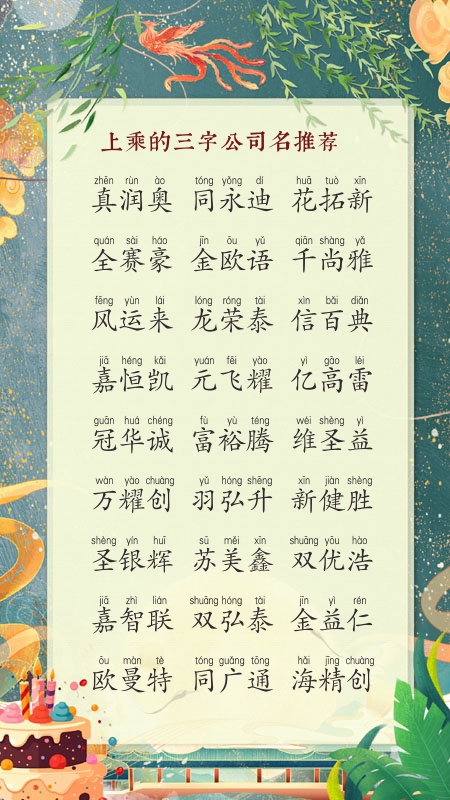 上乘的三字公司名推荐
zhēn rùn ào tóng yǒng dí huā tuò xīn
真润奥 同永迪 花拓新
quán sài háo jīn ōu yǔ qiān shàng yǎ
全赛豪 金欧语 千尚雅
fēng yùn lái lóng róng tài xìn bǎi diǎn
风运来 龙荣泰 信百典
jiā héng kǎi yuán fēi yào yì gāo léi
嘉恒凯 元飞耀 亿高雷
guān huá chéng fù yù téng wéi shèng yì
冠华诚 富裕腾 维圣益
wàn yào chuàng yǔ hóng shēng xīn jiàn shèng
万耀创 羽弘升 新健胜
shèng yín huī sū měi xīn shuāng yōu hào
圣银辉 苏美鑫 双优浩
jiā zhì lián shuāng hóng tài jīn yì rén
嘉智联 双弘泰 金益仁
ōu màn tè tóng guǎng tōng hǎi jīng chuàng
欧曼特 同广通 海精创